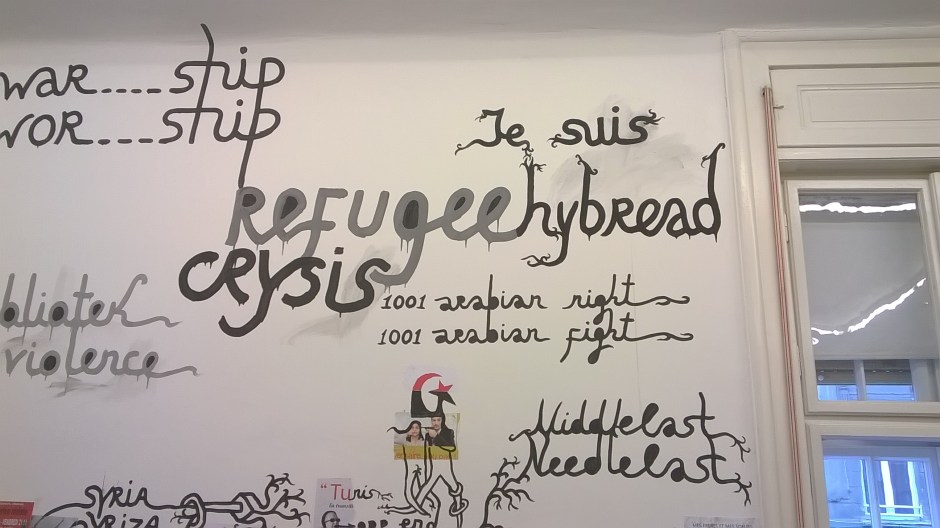 war....ship
wor...ship
Je suis
Refugee hybread
crysis
1001 arabian right
1001 arabian fight
bliotek
violence
Middleeast
Needleeast
SYRIA
YRIZA
"Tunis